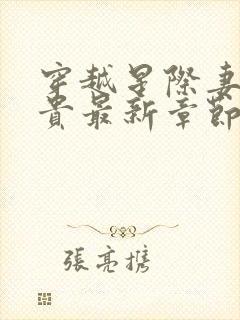 穿越星際妻
貴最新章節
張亮携